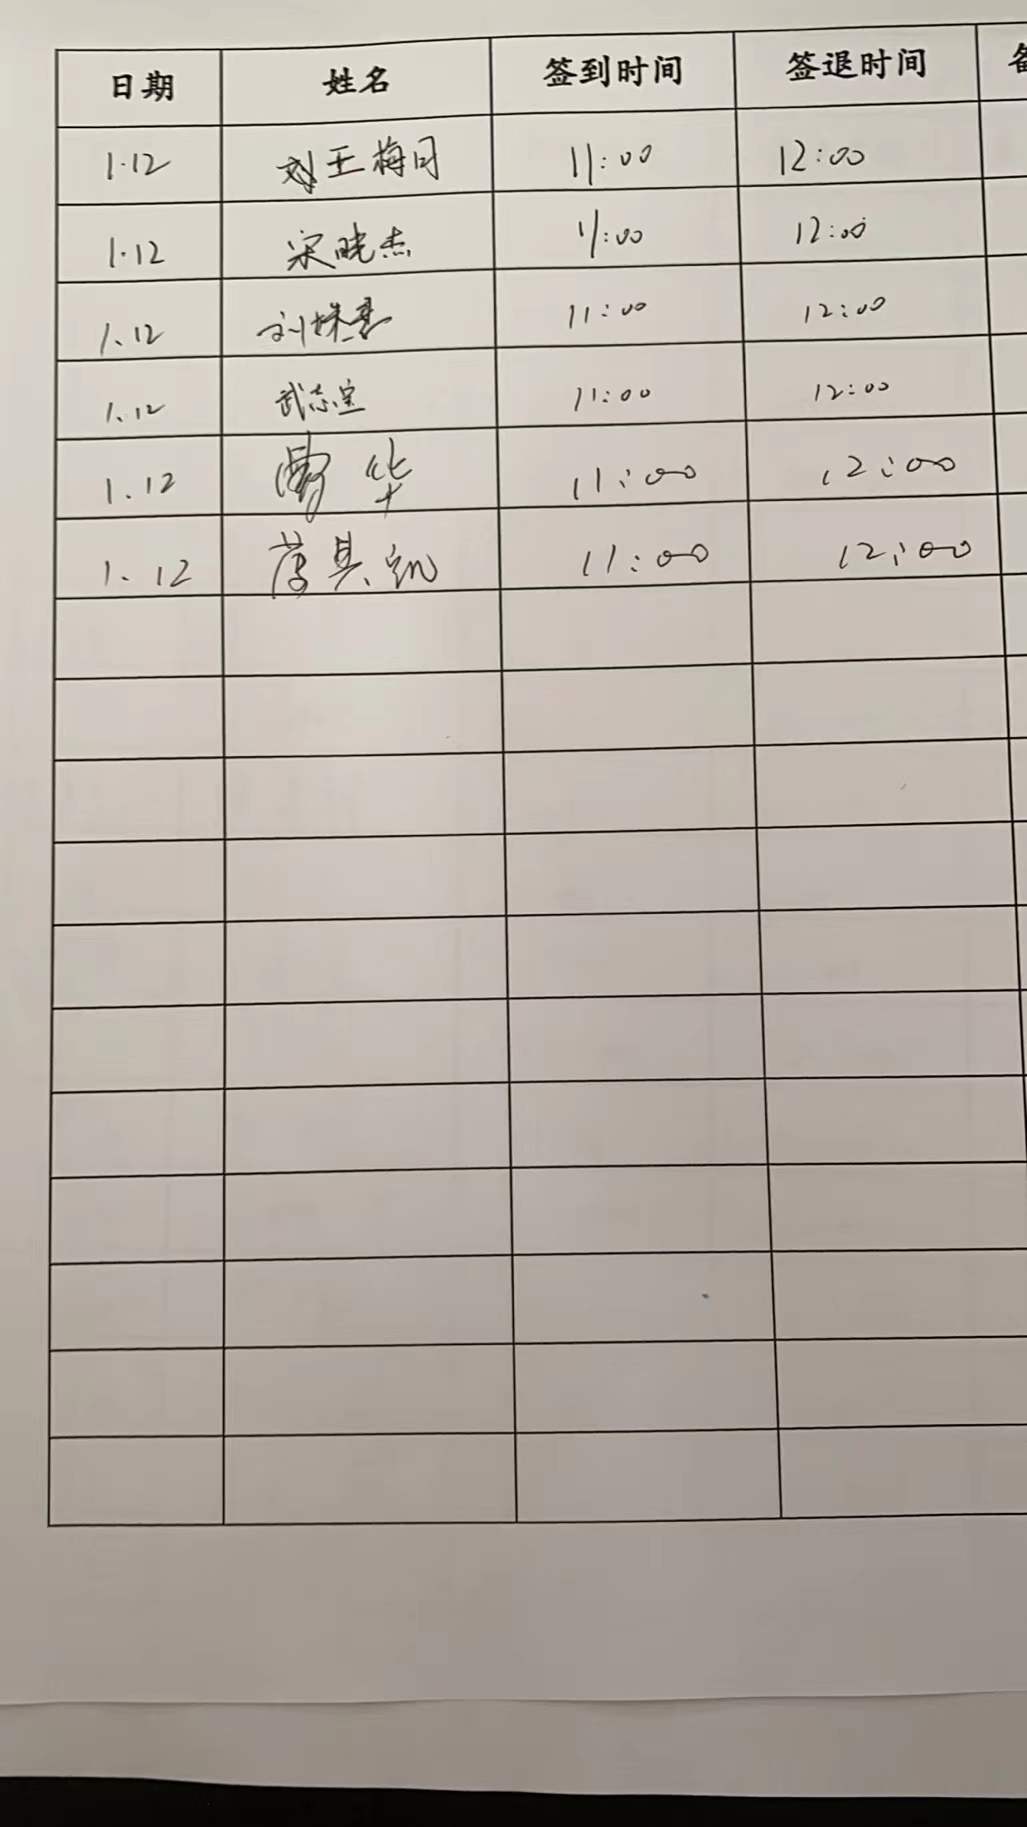 日期 姓名 签到时间 签退时间
1.12 刘王梅月 11:00 12:00
1.12 宋晓杰 11:00 12:00
1.12 刘 11:00 12:00
1.12 武志宝 11:00 12:00
1.12 华 11:00 12:00
1.12 11:00 12:00